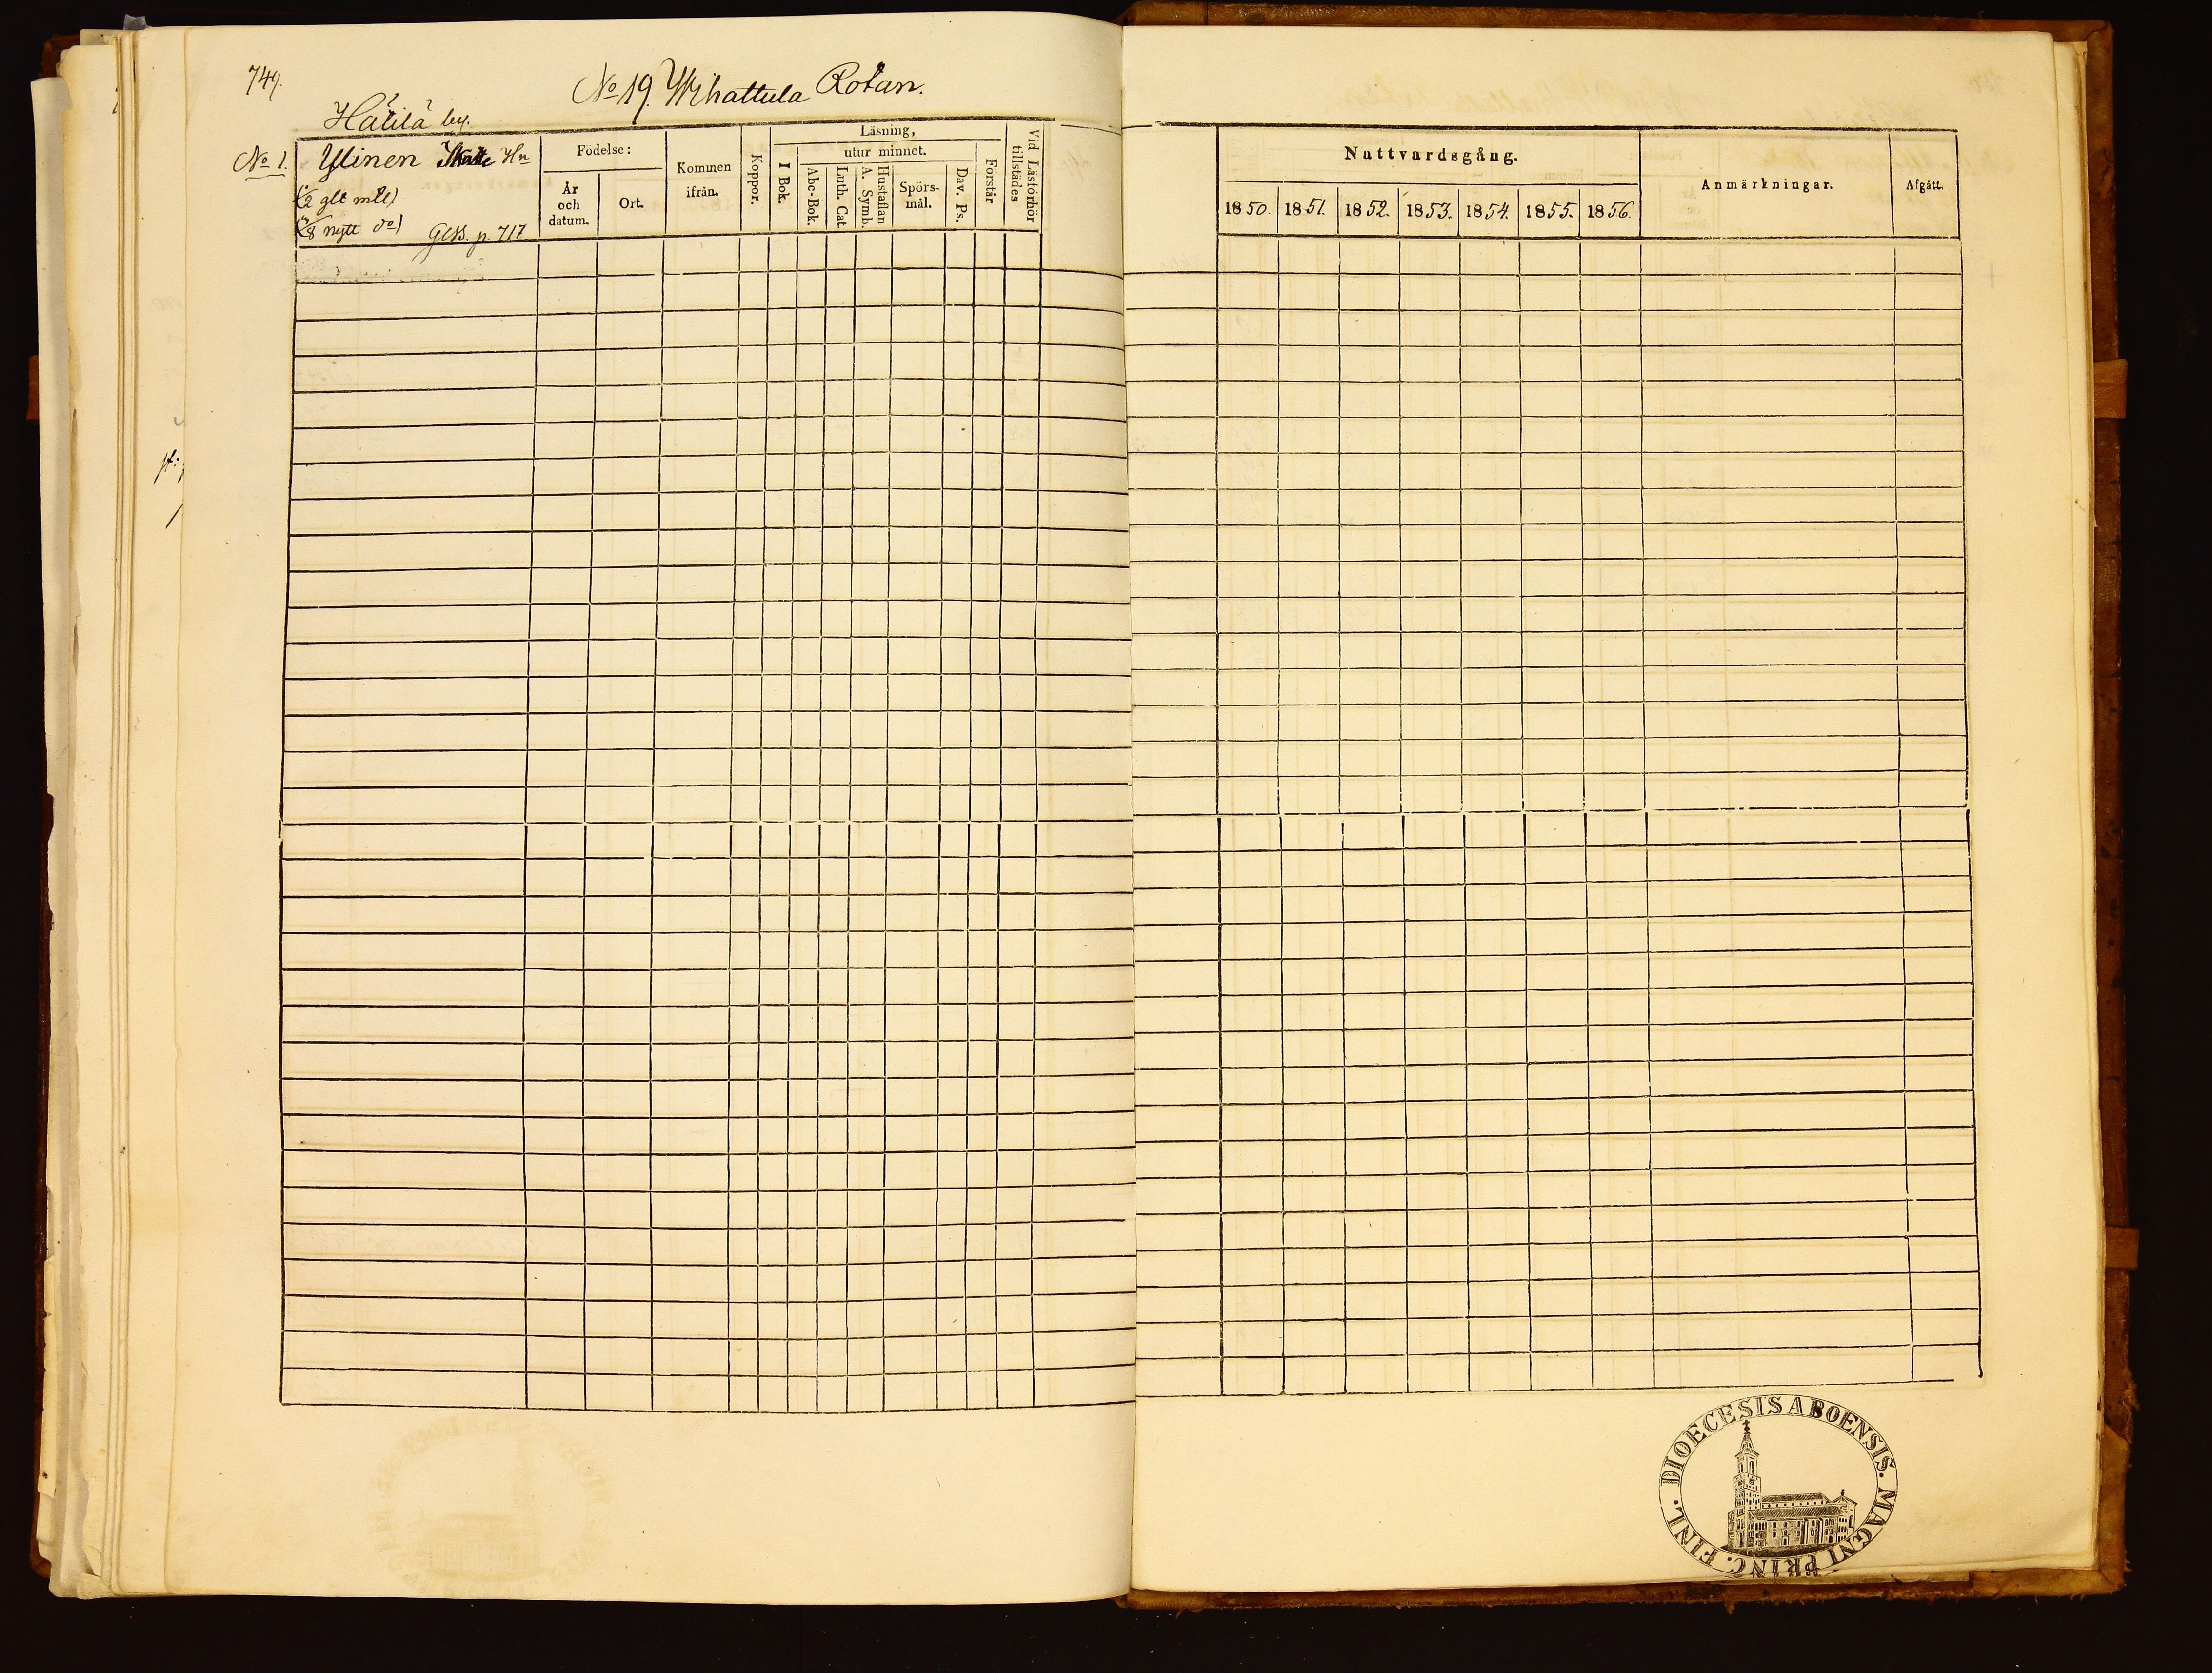 749.
No 19. Wihattula Rotan.
Hälilä by.
No 1.
Ylinen Skatte Hn
(1/2 glt mtl)
nytt do)
p. 717
Födelse:
År och datum.
Ort.
Kommen ifrån.
Koppor.
Läsning,
I Bok.
utur minnet.
Abc-Bok.
Luth. Cat.
Hustaflan
A. Symb.
Spörs-
mål.
Dav. Ps.
Förstår
Vid Läsförhör
tillstädes
Nattvardsgång.
1850. 1851. 1852. 1853. 1854. 1855. 1856.
Anmärkningar.
Afgått.
DIOECESIS ABOENSIS. MAGNI PRINC. FINL.